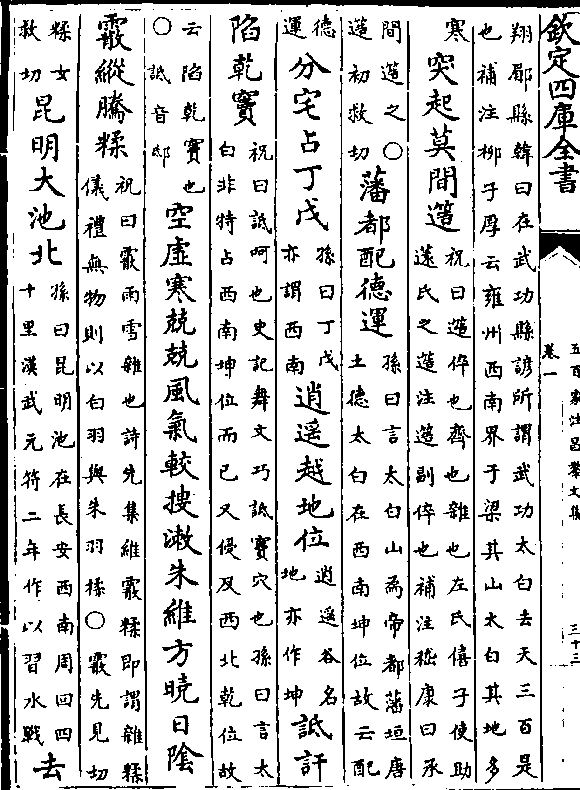 欽定四庫全書
五百家注昌黎文集
卷一
三十三
翔郿縣韓曰在武功縣諺所謂武功太白去天三百是
也補注柳子厚云雍州西南界于梁其山太白其地多
寒
突起莫間簉
祝曰簉倅也齊也雜也左氏僖子使助
薳氏之簉注簉副倅也補注嵇康曰承
間簉之○
簉初救切
藩都配德運
孫曰言太白山為帝都藩垣唐
土德太白在西南坤位故云配
德
運
分宅占丁戊
孫曰丁戊
亦謂西南
逍遥越地位
逍遥谷名
地亦作坤
詆訐
陷乾竇
祝曰詆呵也史記舞文巧詆竇穴也孫曰言太
白非特占西南坤位而已又侵及西北乾位故
云陷乾竇也
○詆音邸
空虛寒兢兢風氣較搜漱朱維方曉日隂
霰縱騰糅
祝曰霰雨雪雜也詩先集維霰糅即謂雜糅
儀禮無物則以白羽與朱羽糅○霰先見切
糅女
救切
昆明大池北
孫曰昆明池在長安西南周回四
十里漢武元符二年作以習水戰
去